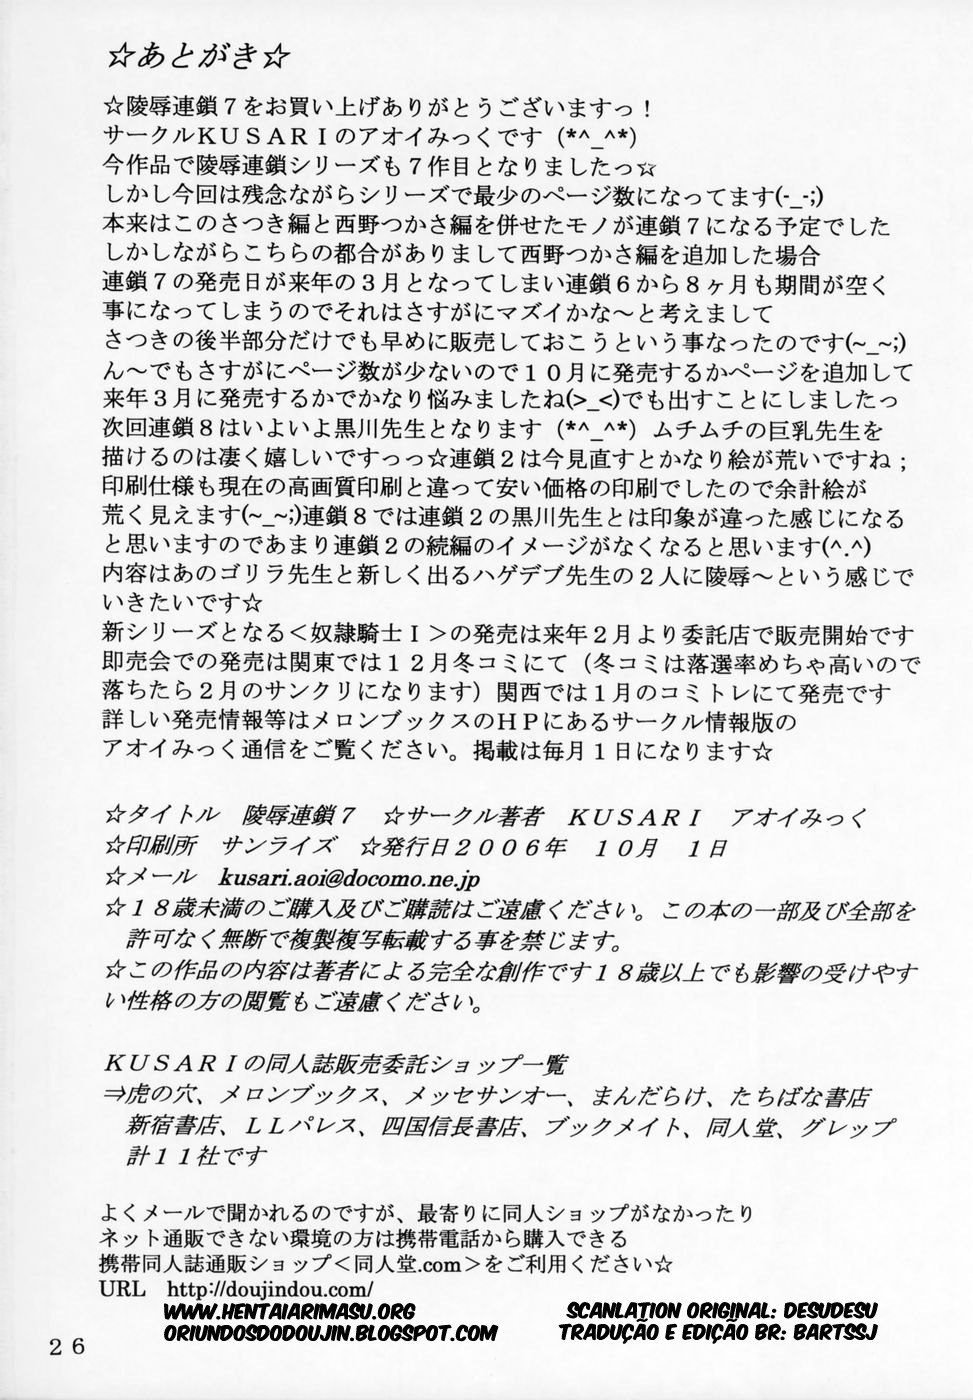 ☆あとがき☆
☆陵辱連鎖７をお買い上げありがとうございますっ！
サークルＫＵＳＡＲＩのアオイみっくです（*^_^*）
今作品で陵辱連鎖シリーズも７作目となりましたっ☆
しかし今回は残念ながらシリーズで最少のページ数になってます(-_-;)
本来はこのさつき編と西野つかさ編を併せたモノが連鎖７になる予定でした
しかしながらこちらの都合がありまして西野つかさ編を追加した場合
連鎖７の発売日が来年の３月となってしまい連鎖６から８ヶ月も期間が空く
事になってしまうのでそれはさすがにマズイかな～と考えまして
さつきの後半部分だけでも早めに販売しておこうという事なったのです(~_~;)
ん～でもさすがにページ数が少ないので１０月に発売するかページを追加して
来年３月に発売するかでかなり悩みましたね(>_<)でも出すことにしましたっ
次回連鎖８はいよいよ黒川先生となります（*^_^*）ムチムチの巨乳先生を
描けるのは凄く嬉しいですっっ☆連鎖２は今見直すとかなり絵が荒いですね；
印刷仕様も現在の高画質印刷と違って安い価格の印刷でしたので余計絵が
荒く見えます(~_~;)連鎖８では連鎖２の黒川先生とは印象が違った感じになる
と思いますのであまり連鎖２の続編のイメージがなくなると思います(^.^)
内容はあのゴリラ先生と新しく出るハゲデブ先生の２人に陵辱～という感じで
いきたいです☆
新シリーズとなる＜奴隷騎士Ⅰ＞の発売は来年２月より委託店で販売開始です
即売会での発売は関東では１２月冬コミにて（冬コミは落選率めちゃ高いので
落ちたら２月のサンクリになります）関西では１月のコミトレにて発売です
詳しい発売情報等はメロンブックスのＨＰにあるサークル情報版の
アオイみっく通信をご覧ください。掲載は毎月１日になります☆
☆タイトル　陵辱連鎖７　☆サークル著者　ＫＵＳＡＲＩ　アオイみっく
☆印刷所　サンライズ　☆発行日２００６年　１０月　１日
☆メール　kusari.aoi@docomo.ne.jp
☆１８歳未満のご購入及びご購読はご遠慮ください。この本の一部及び全部を
許可なく無断で複製複写転載する事を禁じます。
☆この作品の内容は著者による完全な創作です１８歳以上でも影響の受けやす
い性格の方の閲覧もご遠慮ください。
ＫＵＳＡＲＩの同人誌販売委託ショップ一覧
⇒虎の穴、メロンブックス、メッセサンオー、まんだらけ、たちばな書店
新宿書店、ＬＬパレス、四国信長書店、ブックメイト、同人堂、グレップ
計１１社です
よくメールで聞かれるのですが、最寄りに同人ショップがなかったり
ネット通販できない環境の方は携帯電話から購入できる
携帯同人誌通販ショップ＜同人堂.com＞をご利用ください☆
URL　http://doujindou.com/
WWW.HENTAIARIMASU.ORG
ORIUNDOSDODOUJIN.BLOGSPOT.COM
SCANLATION ORIGINAL: DESUDESU
TRADUÇÃO E EDIÇÃO BR: BARTSSJ
２６